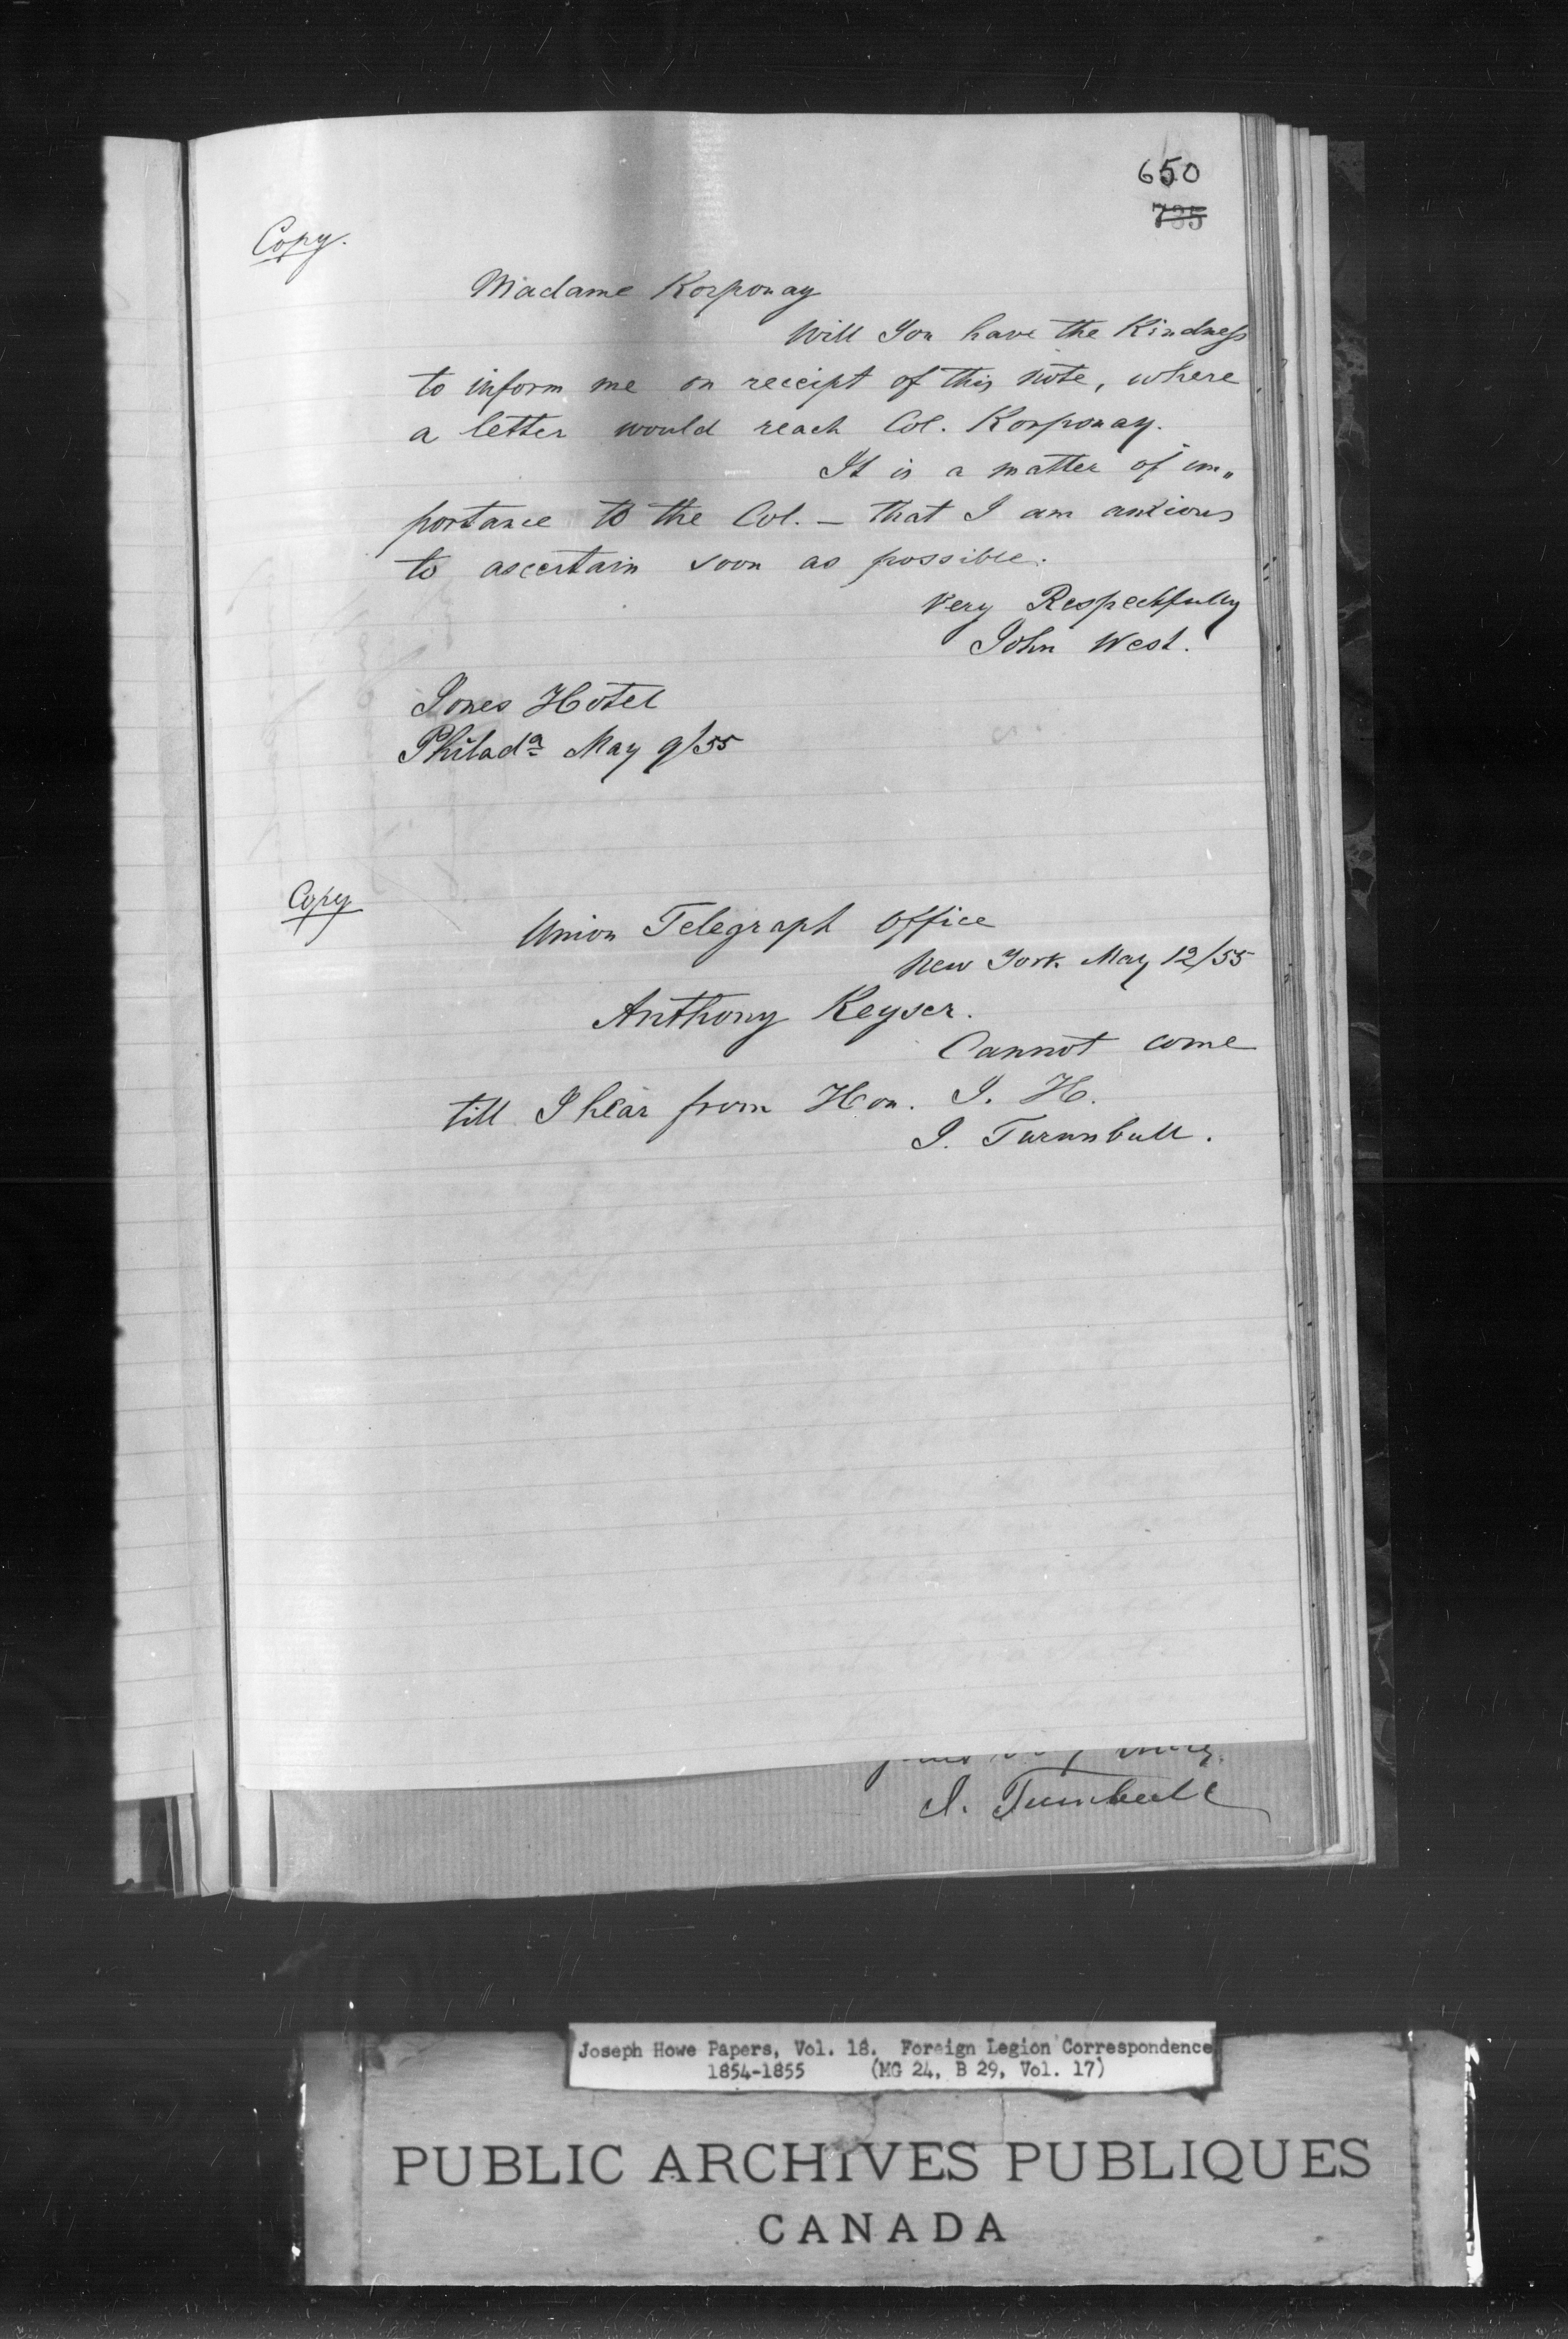 650
735
Copy.
Madame Korponay
Will You have the Kindness
to inform me on receipt of this note, where
a letter would reach Col. Korponay.
It is a matter of im„
portance to the Col. — that I am anxious
to ascertain soon as possible.
Very Respectfully
John West.
Jones Hotel
Philada May 9/55
Copy
Union Telegraph Office
New York May 12/55
Anthony Keyser.
Cannot come
till I hear from Hon. J. H.
J. Turnnbull.
J. Turnbull
Joseph Howe Papers, Vol. 18. Foreign Legion Correspondence
1854-1855 (MG 24, B 29, Vol. 17)
PUBLIC ARCHIVES PUBLIQUES
CANADA